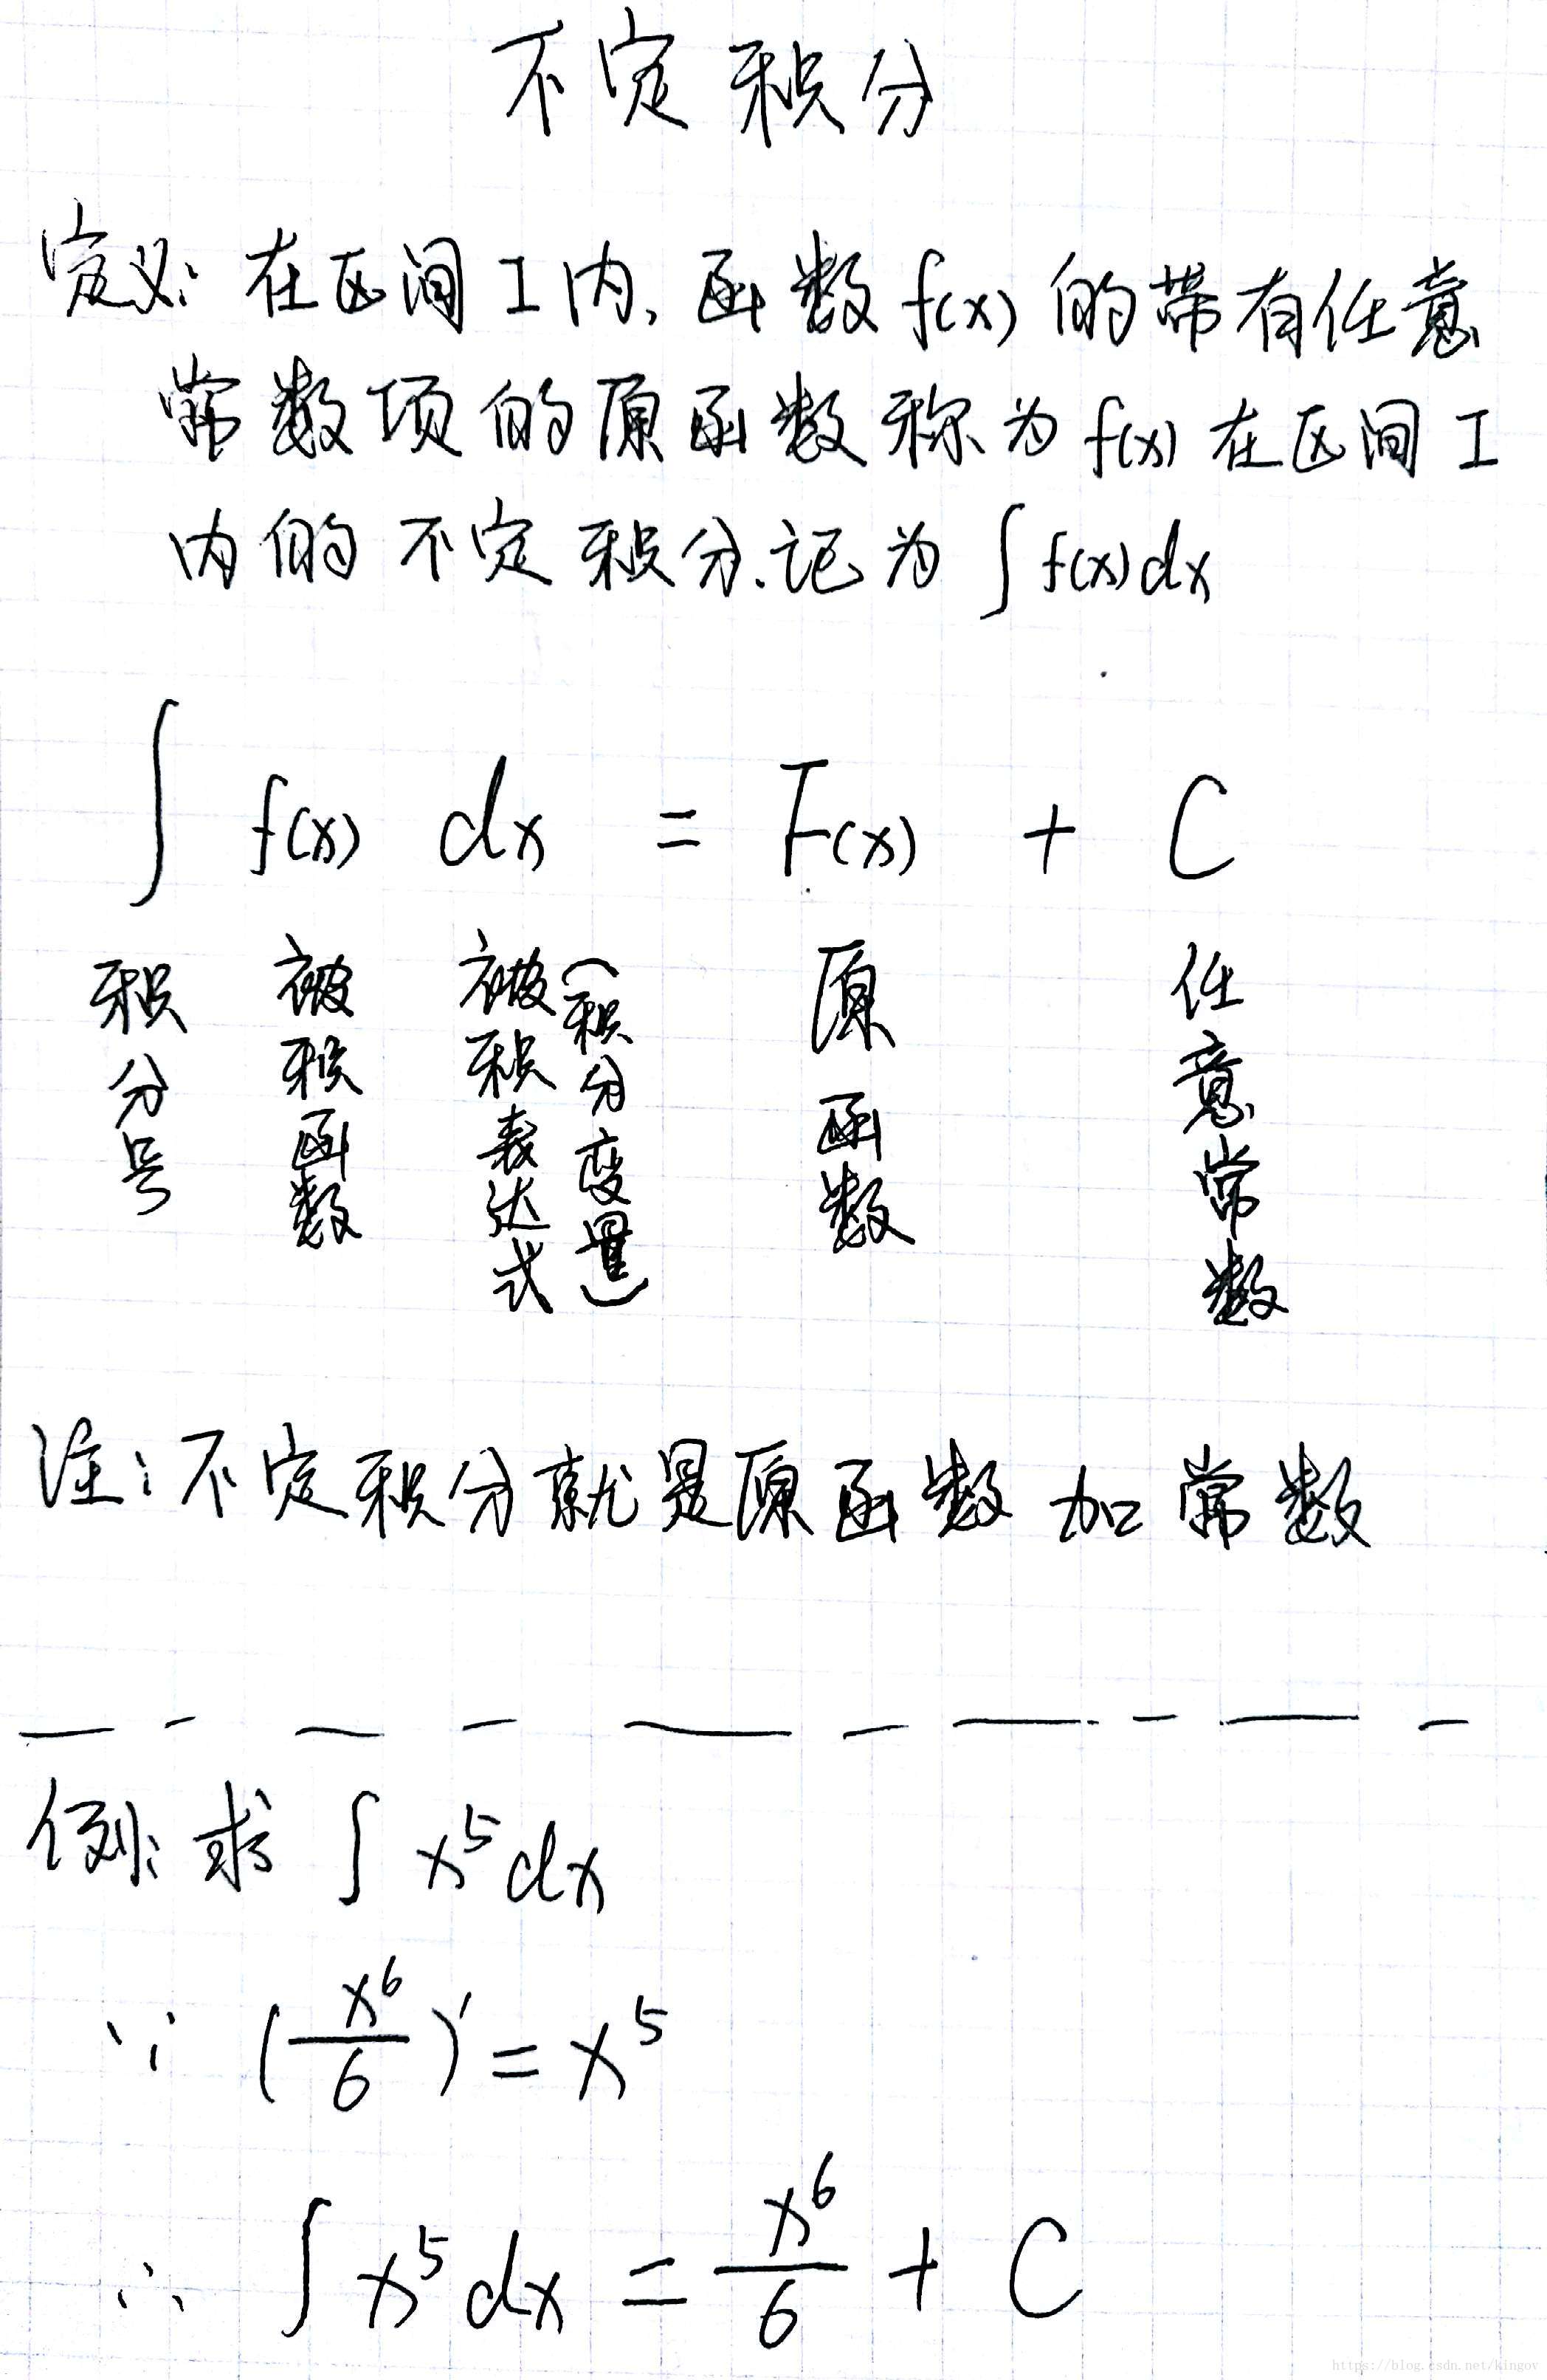 不定积分
定义: 在区间 I 内, 函数 f(x) 的带有任意
常数项的原函数称为 f(x) 在区间 I
内的不定积分.记为 ∫ f(x) dx
∫ f(x) dx = F(x) + C
积分号
被积函数
被积表达式
(积分变量)
原函数
任意常数
注: 不定积分就是原函数加常数
例: 求 ∫ x⁵ dx
∵ (x⁶/6)' = x⁵
∴ ∫ x⁵ dx = x⁶/6 + C
https://blog.csdn.net/kingov